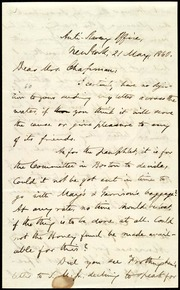 Anti-Slavery Office,
New York, 21 May, 1861.
Dear Mrs. Chapman,
I certainly have no objec-
tion to your sending my letter across the
water, if you think it will serve
the cause or give pleasure to any
of its friends.
As for the pamphlet, it is for
the Committee in Boston to decide.
Could it not be got out in time to
go with May's & Garrison's baggage?
At any rate no time should be lost
if the thing is to be done at all. Could
not the Hovey fund be made avail-
able for this?
Did you see Frothingham's
declining to speak for